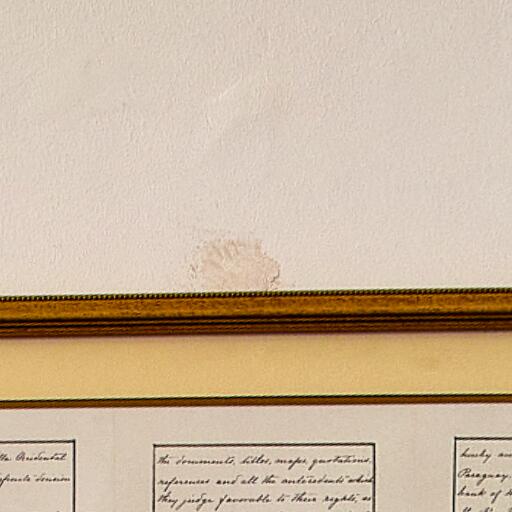 the Occidental
definite decision
the documents, titles, maps, quotations,
references and all the antecedents which
they judge favorable to their rights, as
Paraguay
bank of